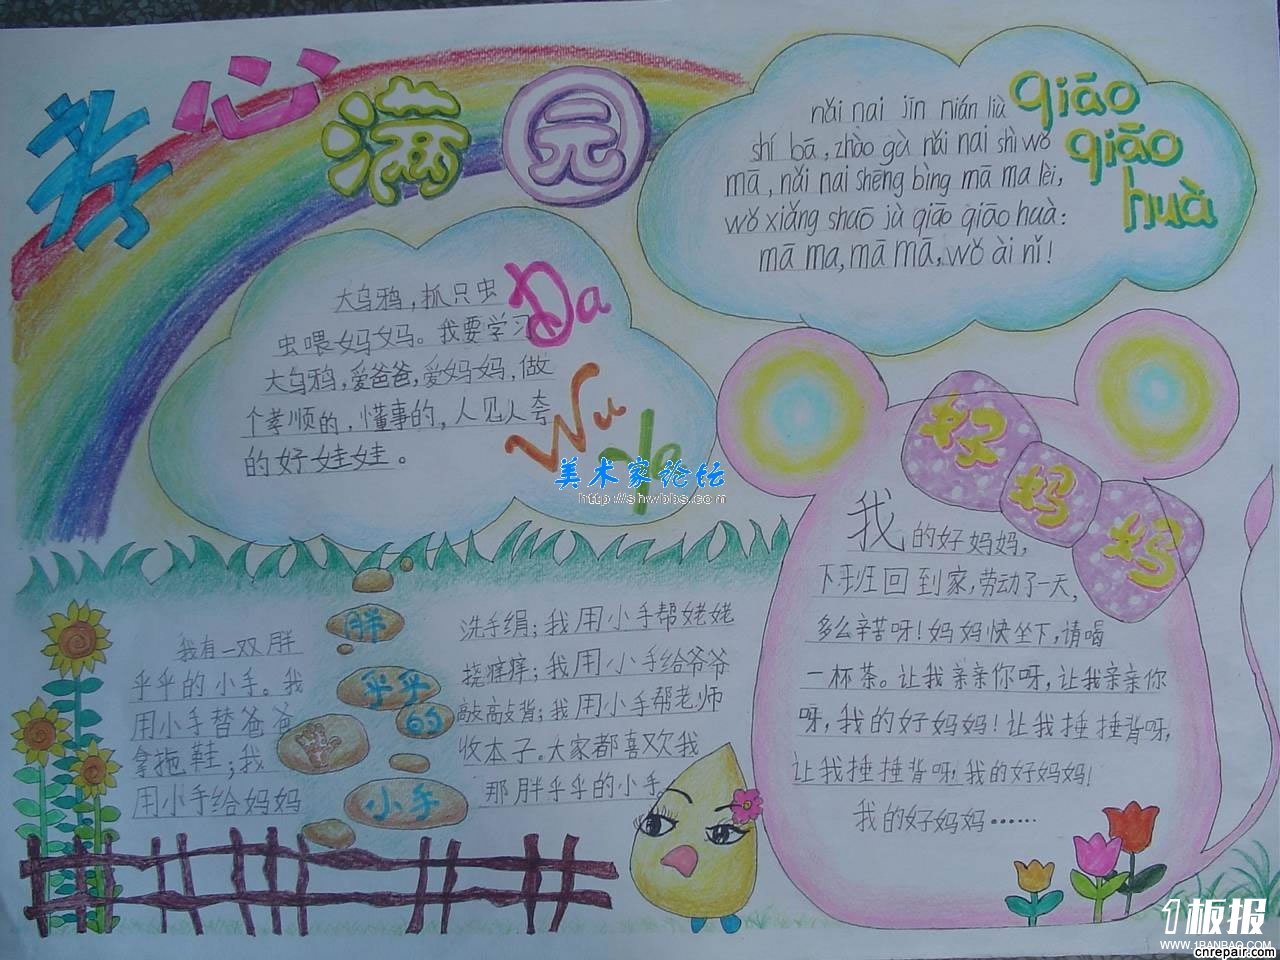 孝心满园
nǎi nai jīn nián liù
shí bā, zhào gù nǎi nai shì wǒ
mā, nǎi nai shēng bìng mā ma lèi,
wǒ xiǎng shuō jù qiāo qiāo huà:
mā ma, mā mā, wǒ ài nǐ!
qiāo
qiāo
huà
大乌鸦，抓只虫
虫喂妈妈。我要学习
大乌鸦，爱爸爸，爱妈妈，做
个孝顺的，懂事的，人见人夸
的好娃娃。
Da
Wu
Ya
美术家论坛
http://shwbbs.com
我有一双胖
乎乎的小手。我
用小手替爸爸
拿拖鞋；我
用小手给妈妈
胖
乎乎
的
小手
洗手绢；我用小手帮姥姥
挠痒痒；我用小手给爷爷
敲敲背；我用小手帮老师
收本子。大家都喜欢我
那胖乎乎的小手
好妈妈
我的好妈妈，
下班回到家，劳动了一天，
多么辛苦呀！妈妈快坐下，请喝
一杯茶。让我亲亲你呀，让我亲亲你
呀，我的好妈妈！让我捶捶背呀，
让我捶捶背呀，我的好妈妈！
我的好妈妈……
1板报
WWW.1BANBAO.COM
cnrepair.com